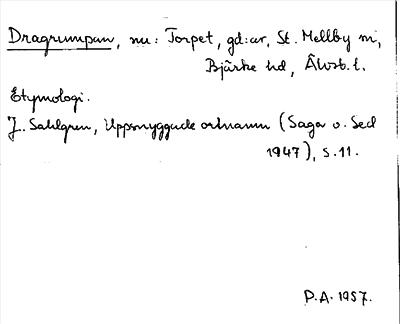 Dragrumpan, nu: Torpet, gd:ar, St. Mellby sn,
Bjärke hd, Älvsb. l.
Etymologi.
J. Sahlgren, Uppsnyggade ortnamn (Saga o. Sed
1947), s. 11.
P.A. 1957.